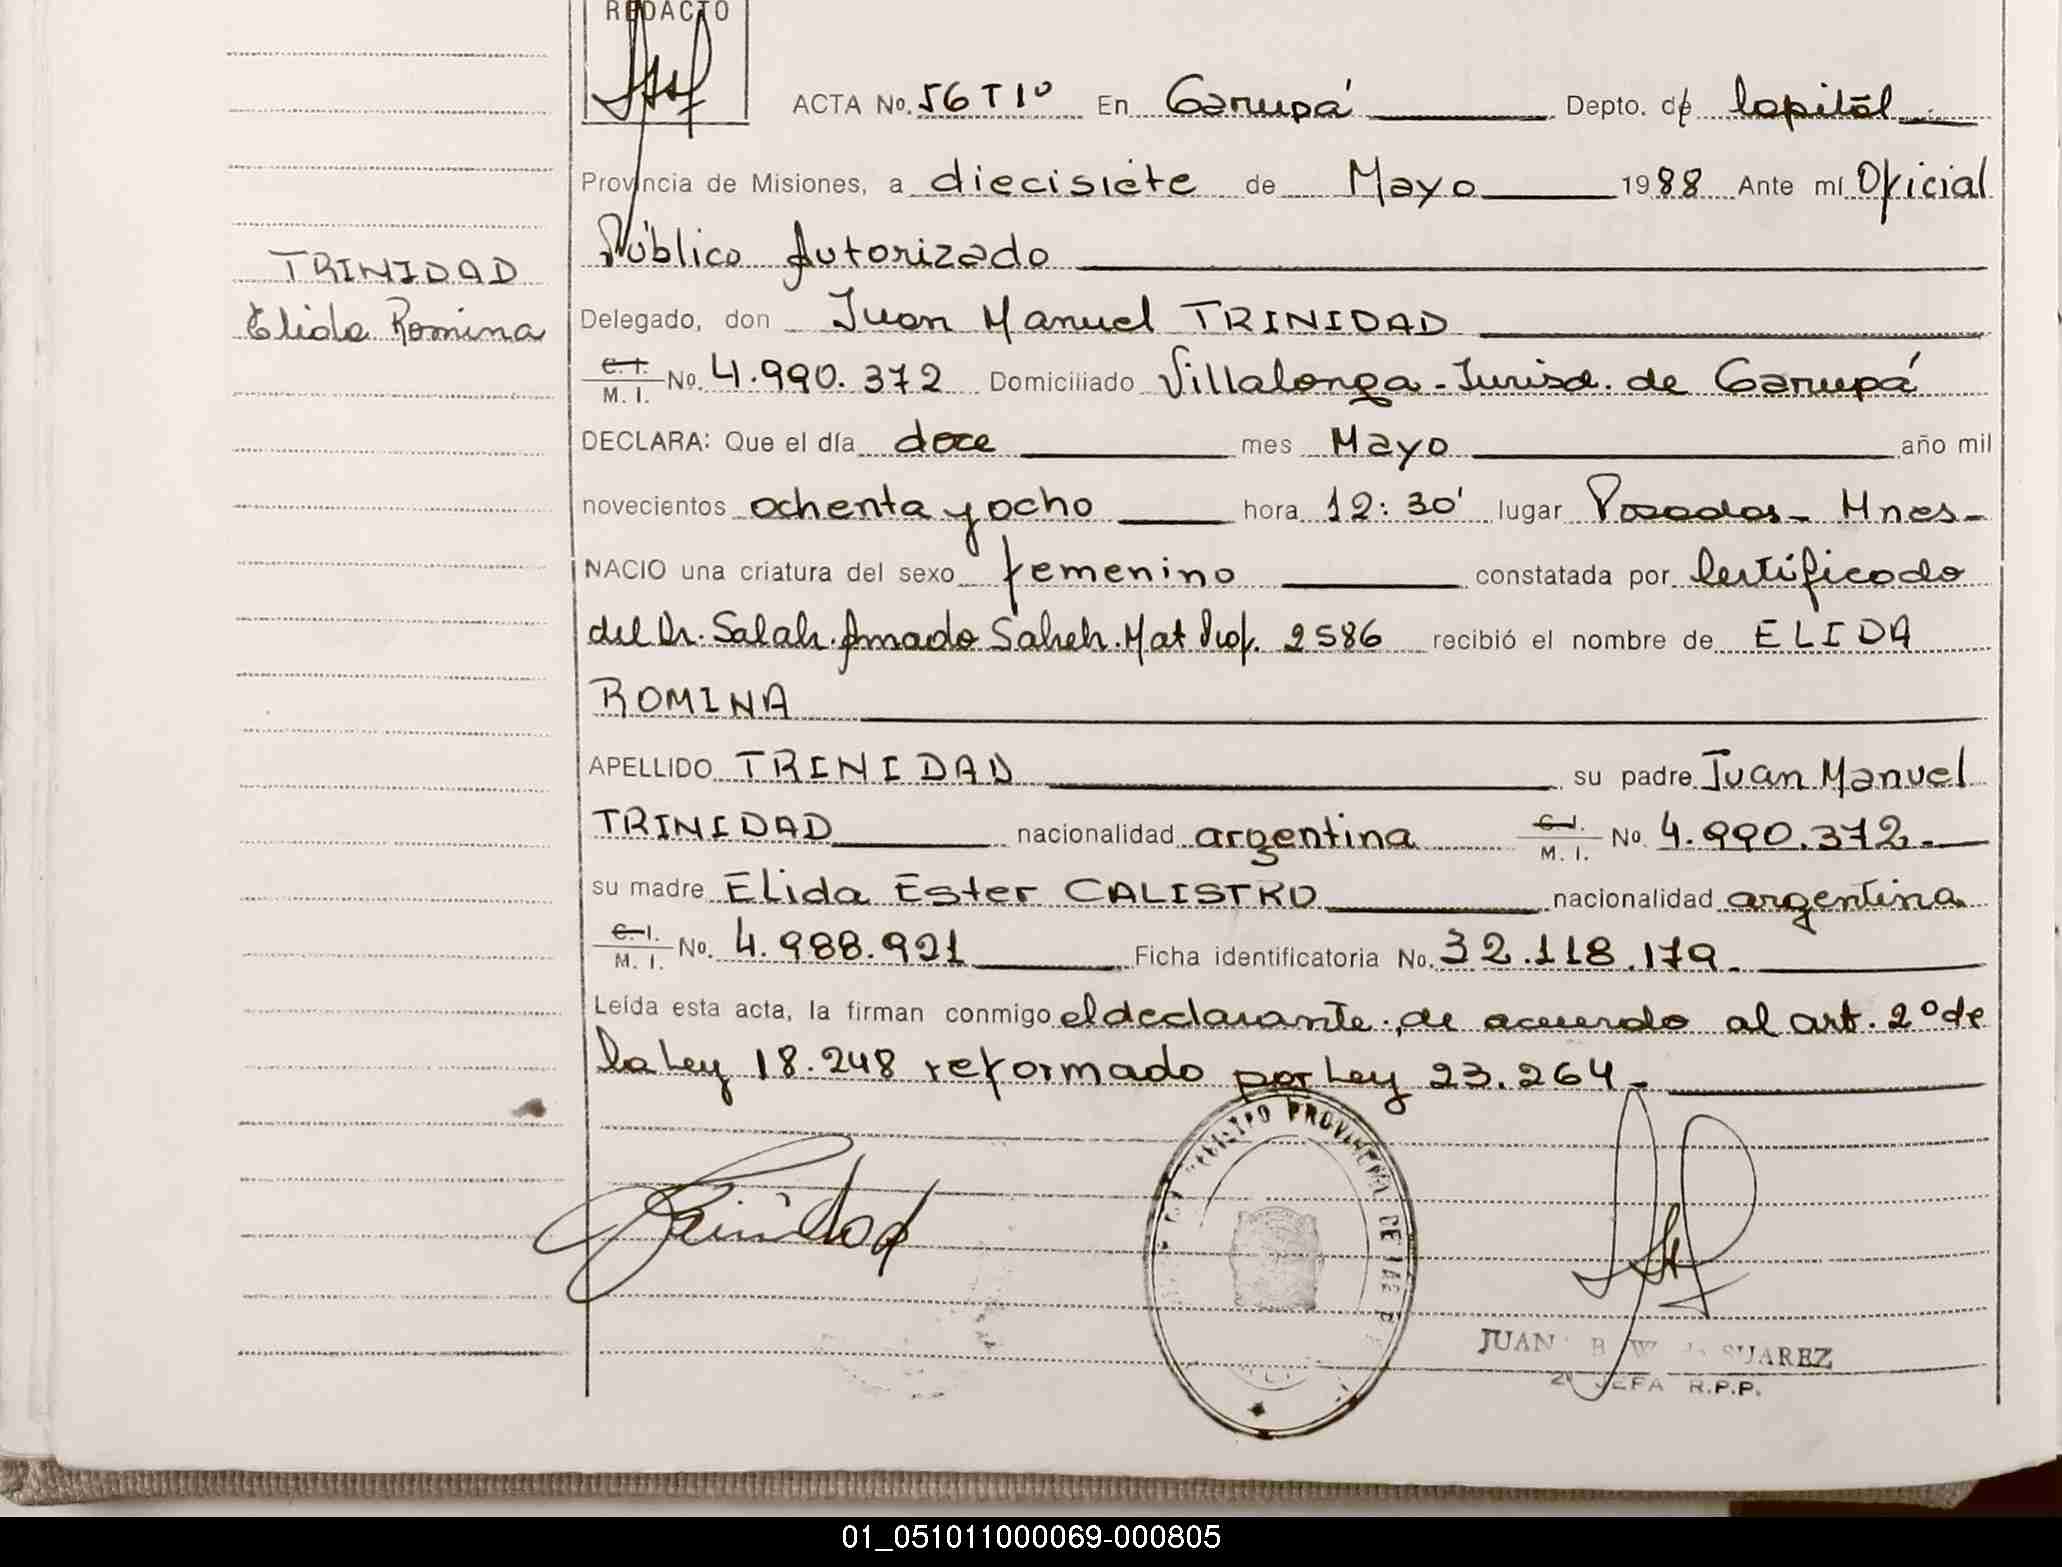 REDACTO
ACTA No. 56 T 1º En Garupá Depto. de Capital
Provincia de Misiones, a diecisiete de Mayo 1988 Ante mí Oficial
Público Autorizado
TRINIDAD
Elida Romina
Delegado, don Juan Manuel TRINIDAD
C. I. M. I. No. 4.990.372 Domiciliado Villalonga - Jurisd. de Garupá
DECLARA: Que el día doce mes Mayo año mil
novecientos ochenta y ocho hora 12:30' lugar Posadas - Mnes -
NACIO una criatura del sexo femenino constatada por Certificado
del Dr. Salah Amado Saheh. Mat Prof. 2586 recibió el nombre de ELIDA
ROMINA
APELLIDO TRINIDAD su padre Juan Manuel
TRINIDAD nacionalidad argentina C. I. M. I. No. 4.990.372.-
su madre Elida Ester CALISTRO nacionalidad argentina
C. I. M. I. No. 4.988.921 Ficha identificatoria No. 32.118.179.-
Leída esta acta, la firman conmigo el declarante, de acuerdo al art. 2º de
la Ley 18.248 reformado por Ley 23.264.-
REGISTRO PROVINCIAL DE LAS P
Trinidad
JUAN B. W. de SUAREZ
2º JEFA R.P.P.
01_051011000069-000805